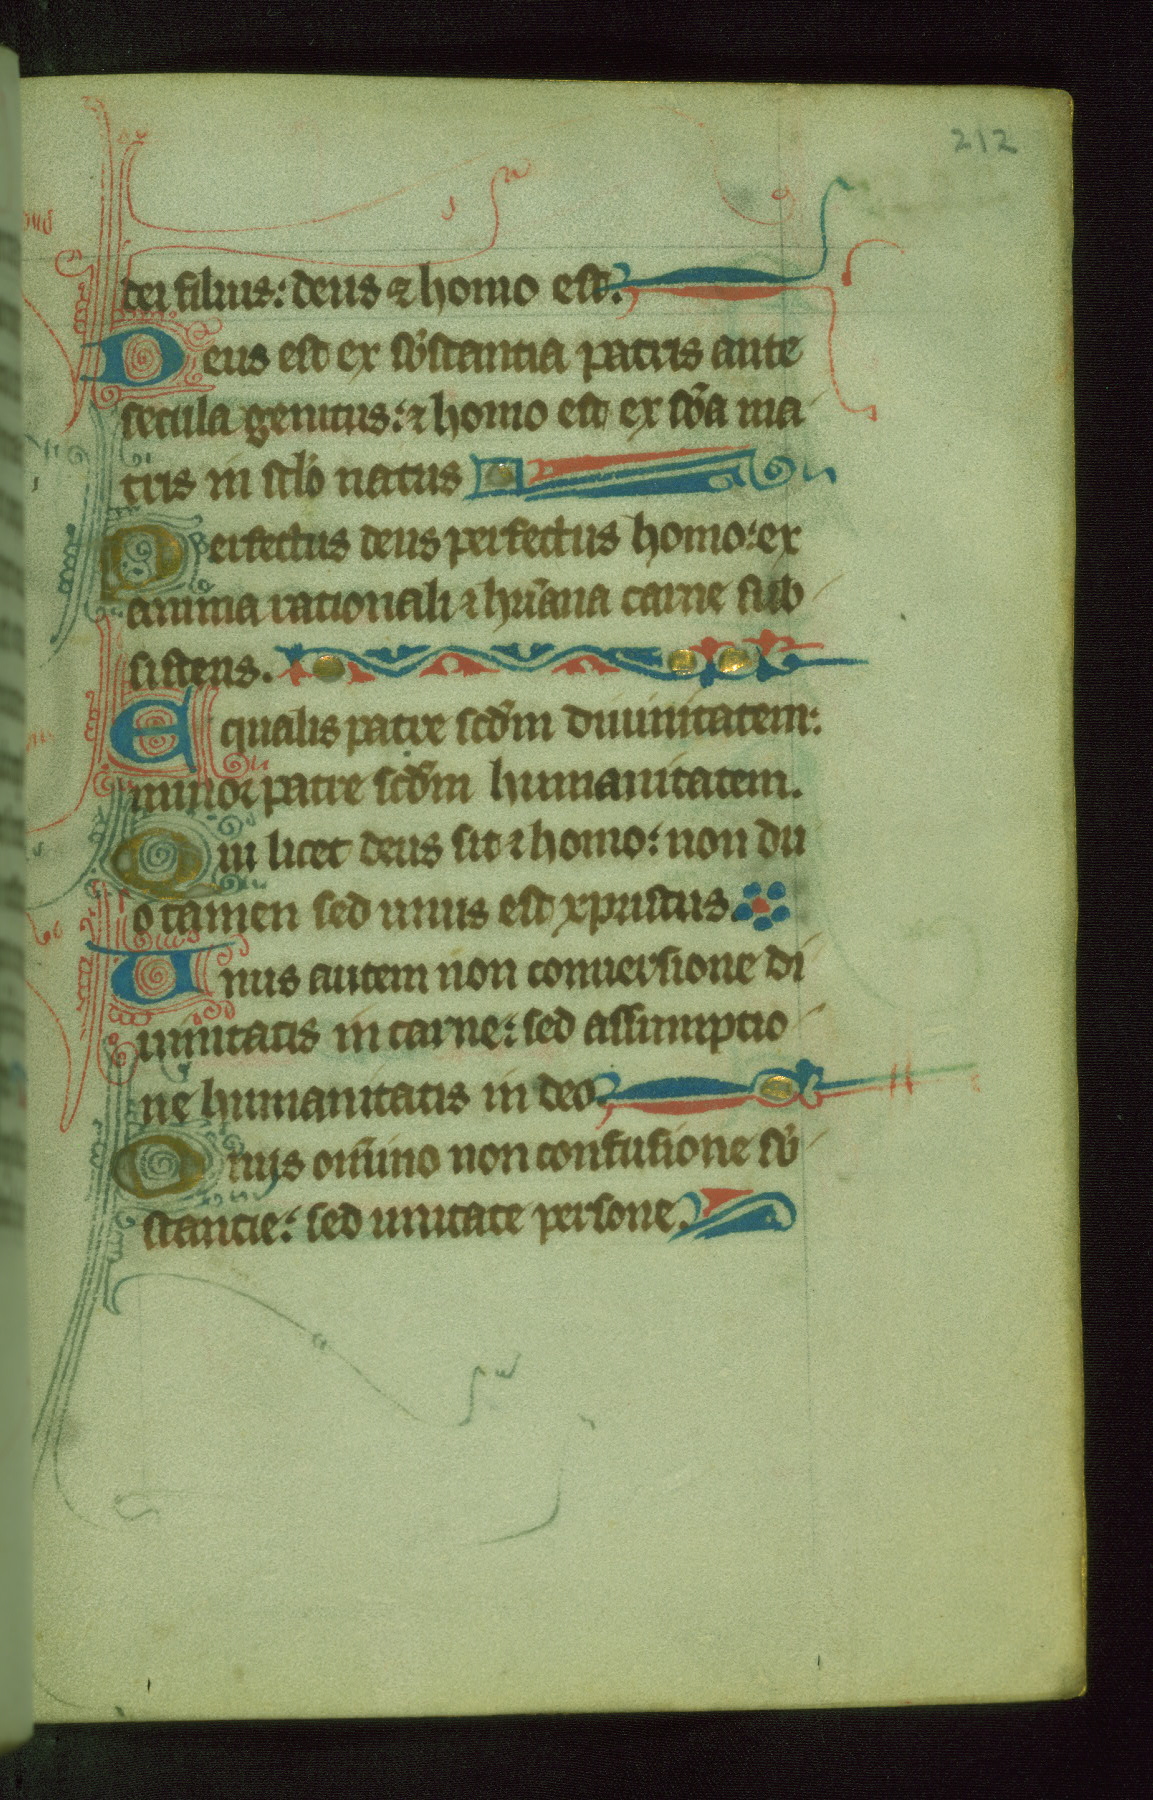 212
dei filius: deus ⁊ homo est.
Deus est ex sb̾stantia patris ante
secula genitus: ⁊ homo est ex sb̾a ma
tris in sclo̾ natus
Perfectus deus perfectus homo: ex
anima rationali ⁊ hūana carne sub
sistens.
Equalis patri scd̾m diuinitatem:
minor patre scd̾m humanitatem.
Qui licet deus sit ⁊ homo: non du
o tamen sed unus est xpristus.
Unus autem non conuersione di
uinitatis in carne: sed assumptio
ne humanitatis in deo.
Unus om̄ino non confusione sb̾
stantie: sed unitate persone.